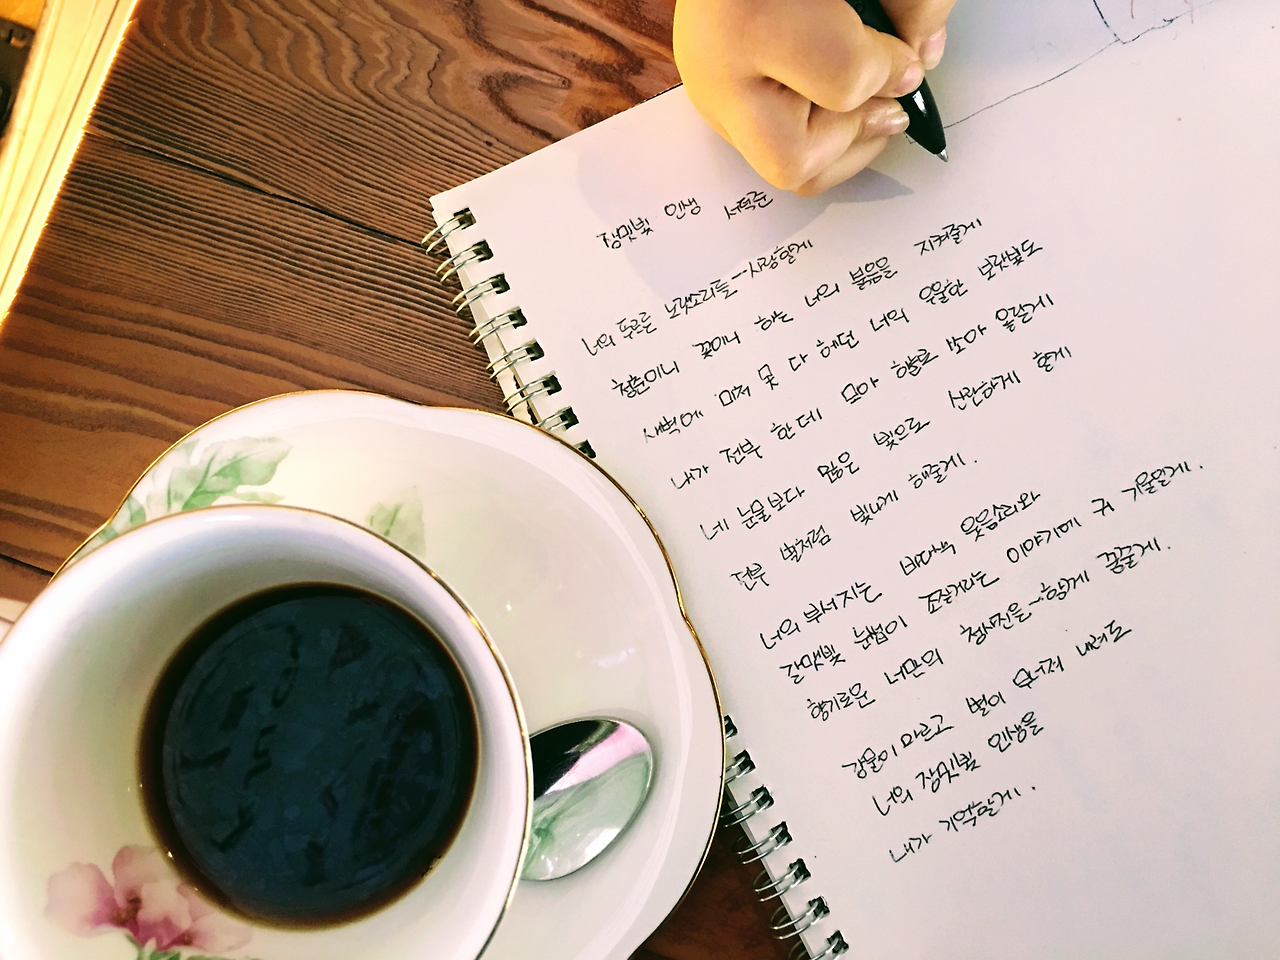 장밋빛 인생 서덕준
너의 푸르른 노랫소리를~사랑할게
청춘이니 꽃이니 하는 너의 붉음을 지켜줄게
새벽에 미처 못 다 헤던 너의 우울한 보랏빛도
내가 전부 한데 모아 하늘로 쏘아 올릴게
네 눈물보다 많은 빛으로 산란하게 할게
전부 별처럼 빛나게 해줄게.
너의 부서지는 바다색 웃음소리와
갈맷빛 눈썹이 조잘거리는 이야기에 귀 기울일게.
향기로운 너만의 청사진을~함께 꿈꿀게.
강물이 마르고 별이 무너져 내려도
너의 장밋빛 인생을
내가 기억할게.